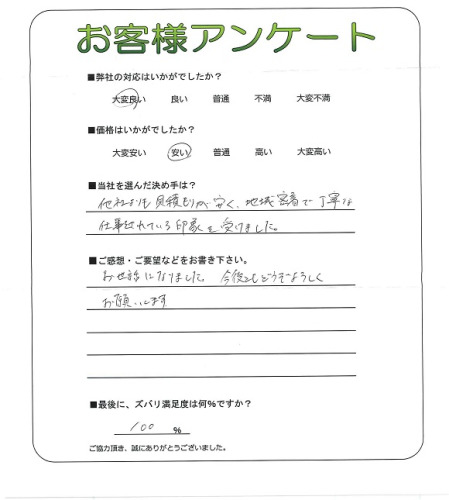 お客様アンケート
■弊社の対応はいかがでしたか？
大変良い 良い 普通 不満 大変不満
■価格はいかがでしたか？
大変安い 安い 普通 高い 大変高い
■当社を選んだ決め手は？
他社よりも見積もりが安く、地域密着で丁寧な
仕事されている印象を受けました。
■ご感想・ご要望などをお書き下さい。
お世話になりました 今後ともどうぞよろしく
お願いします
■最後に、ズバリ満足度は何%ですか？
100 %
ご協力頂き、誠にありがとうございました。